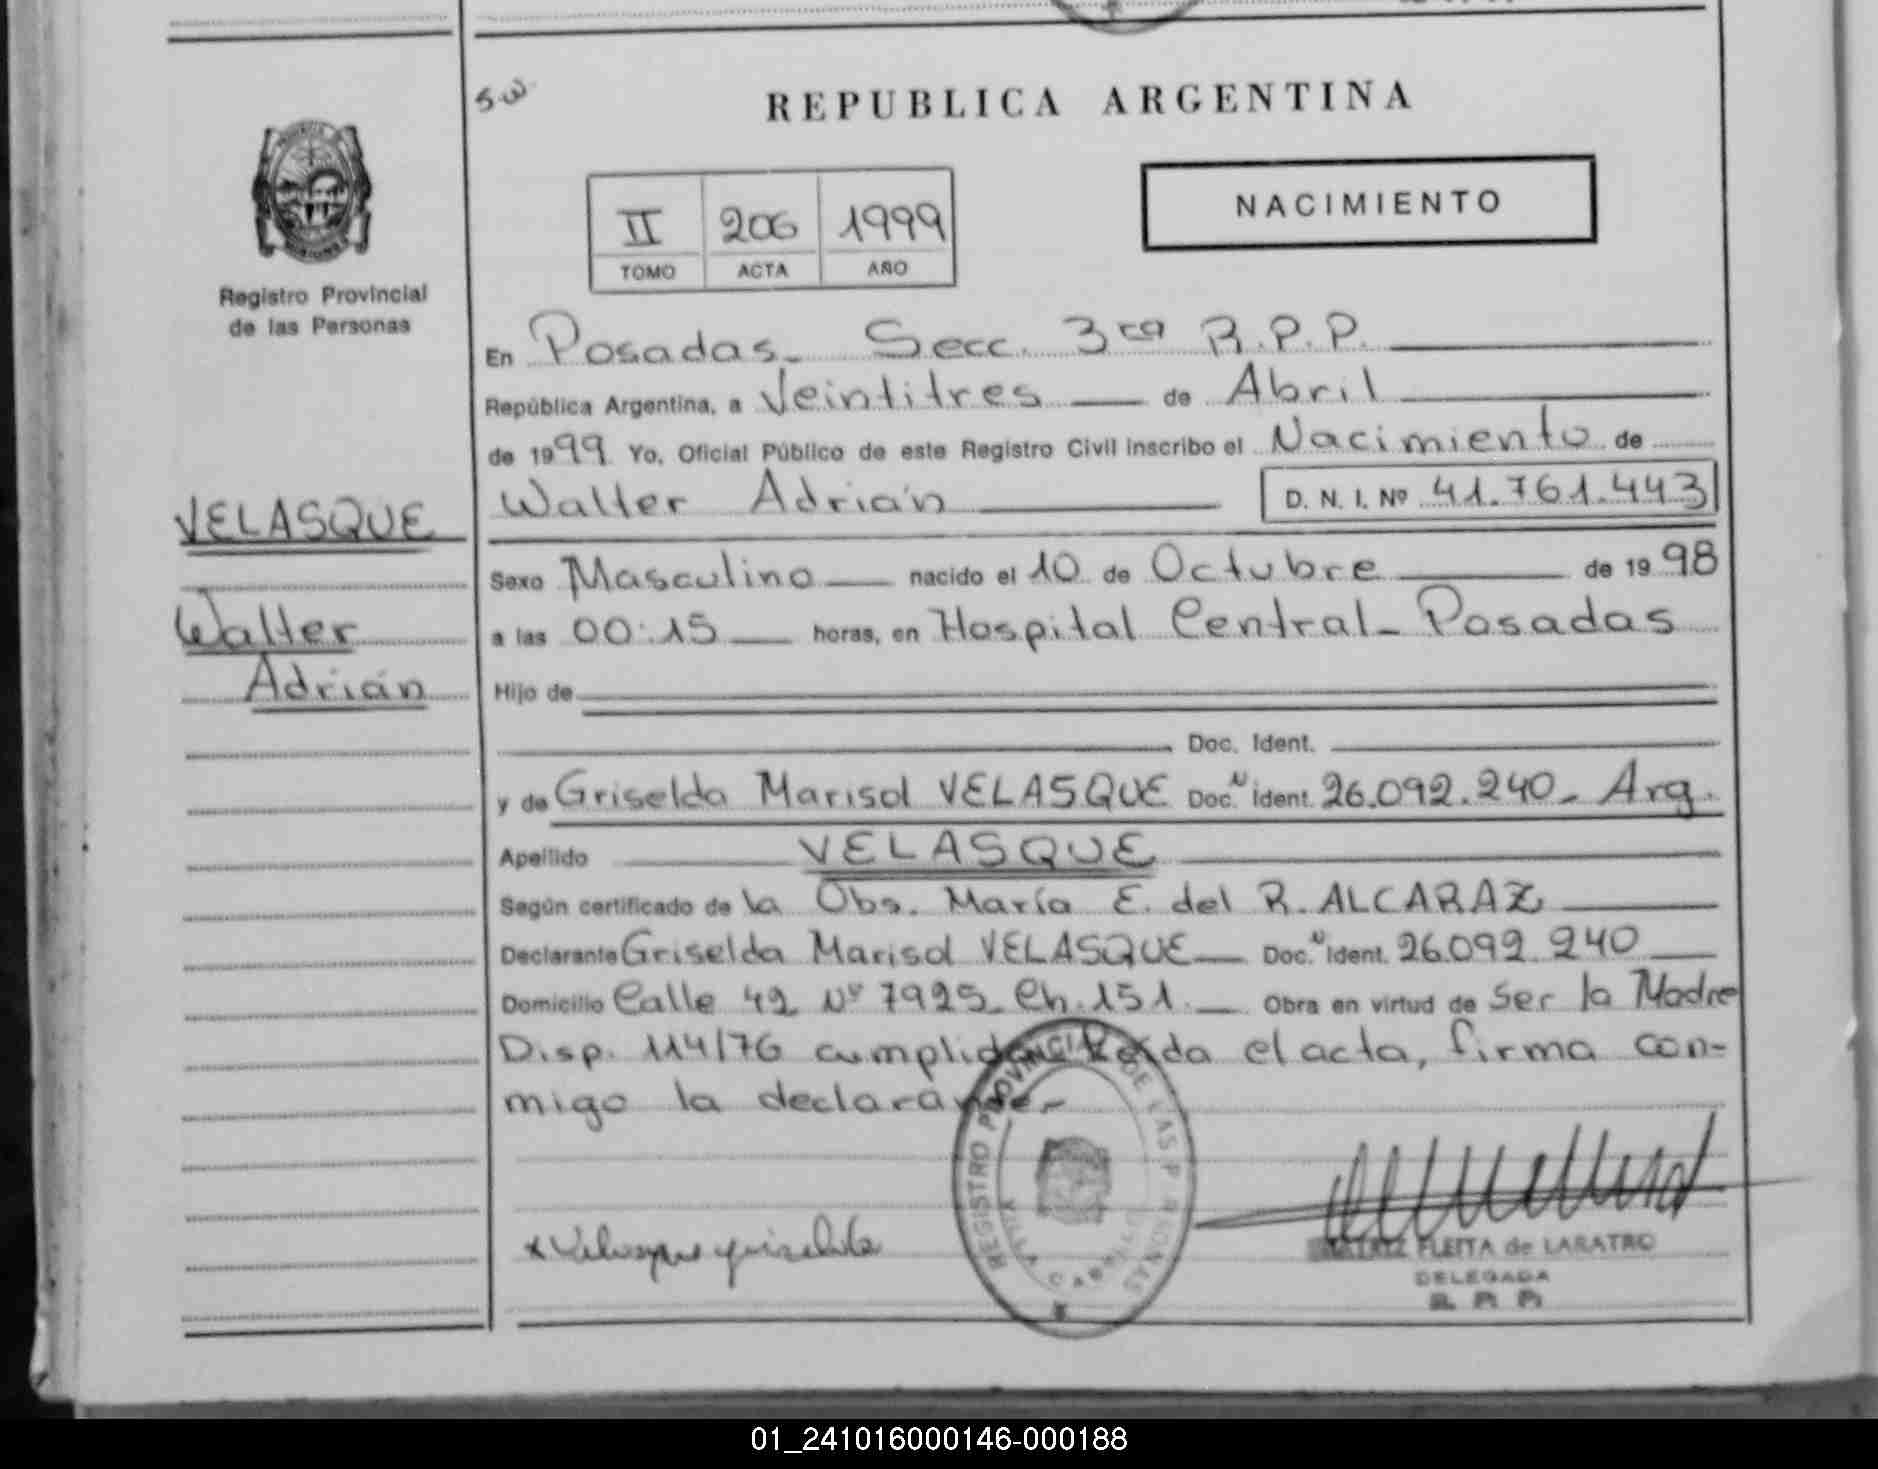 5 w
REPUBLICA ARGENTINA
II 206 1999
TOMO ACTA AÑO
NACIMIENTO
Registro Provincial
de las Personas
VELASQUE
Walter
Adrián
En Posadas - Secc. 3ra R.P.P.
República Argentina, a Veintitres de Abril
de 1999 Yo, Oficial Público de este Registro Civil inscribo el Nacimiento de
Walter Adrián D. N. I. Nº 41.761.443
Sexo Masculino nacido el 10 de Octubre de 1998
a las 00:15 horas, en Hospital Central - Posadas
Hijo de
Doc. Ident.
y de Griselda Marisol VELASQUE Doc. N Ident. 26.092.240 - Arg.
Apellido VELASQUE
Según certificado de la Obs. María E. del R. ALCARAZ
Declarante Griselda Marisol VELASQUE Doc. N Ident. 26.092.240
Domicilio Calle 42 Nº 7925 - Ch. 151. Obra en virtud de Ser la Madre
Disp. 114/76 cumplida. Leída el acta, firma con-
migo la declarante.-
REGISTRO PROVINCIAL DE LAS PERSONAS
VILLA CABELLO
x Velasque griselda
FLEITA de LARATRO
DELEGADA
R. P. P.
01_241016000146-000188